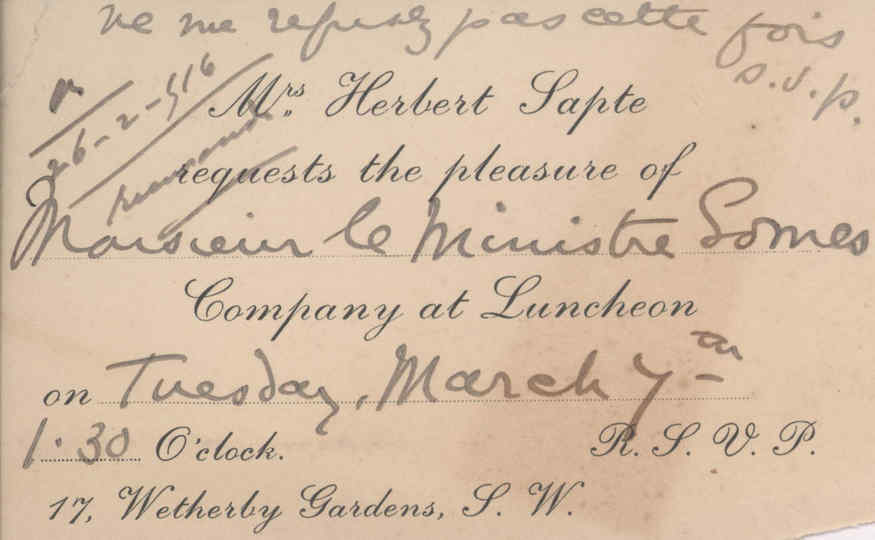 ne me refusez pas cette fois
s.v.p.
R
26-2-916
Mrs. Herbert Sapte
requests the pleasure of
Monsieur le Ministre Gomes
Company at Luncheon
on Tuesday, March 7th
1.30 O'clock. R. S. V. P.
17, Wetherby Gardens, S. W.